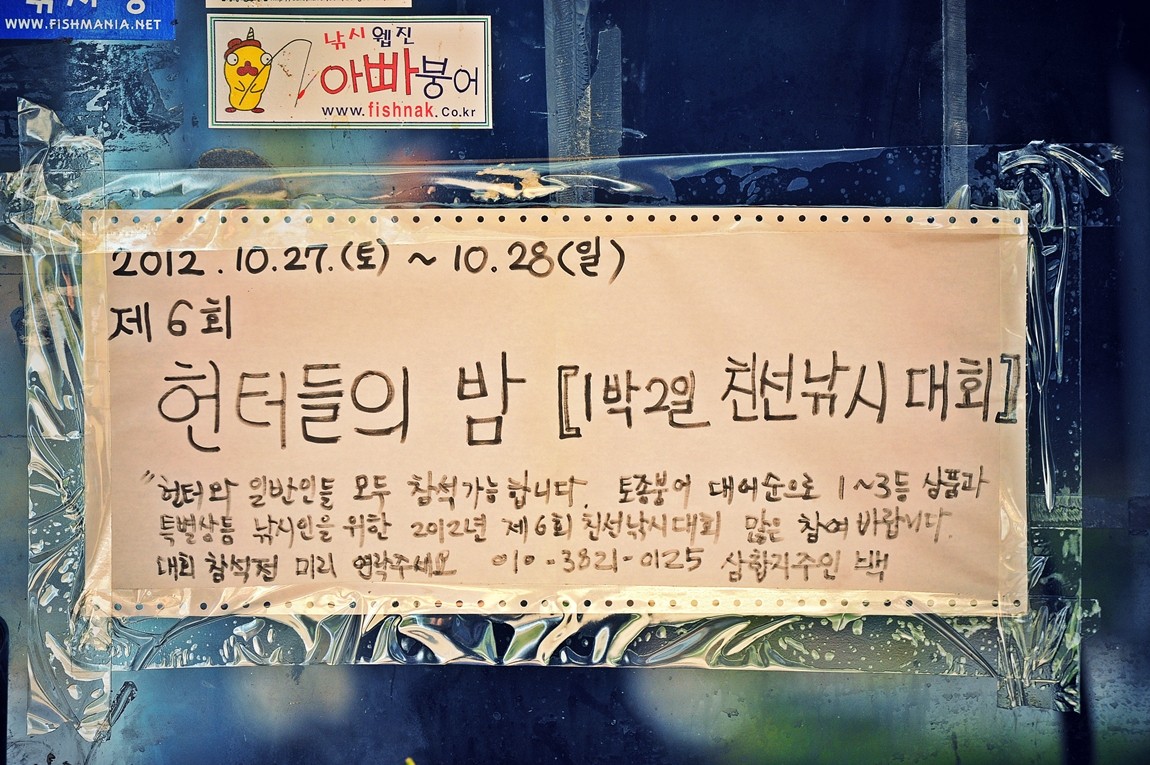 WWW.FISHMANIA.NET
낚시 웹진
아빠붕어
www.fishnak.Co.kr
2012.10.27.(토) ~ 10.28(일)
제 6 회
헌터들의 밤 [1박2일 친선낚시 대회]
"헌터와 일반인들 모두 참석가능합니다. 토종붕어 대어순으로 1~3등 상품과
특별상등 낚시인을 위한 2012년 제6회 친선낚시대회 많은 참여 바랍니다.
대회 참석전 미리 연락주세요 010-3821-0125 삼합지주인 백